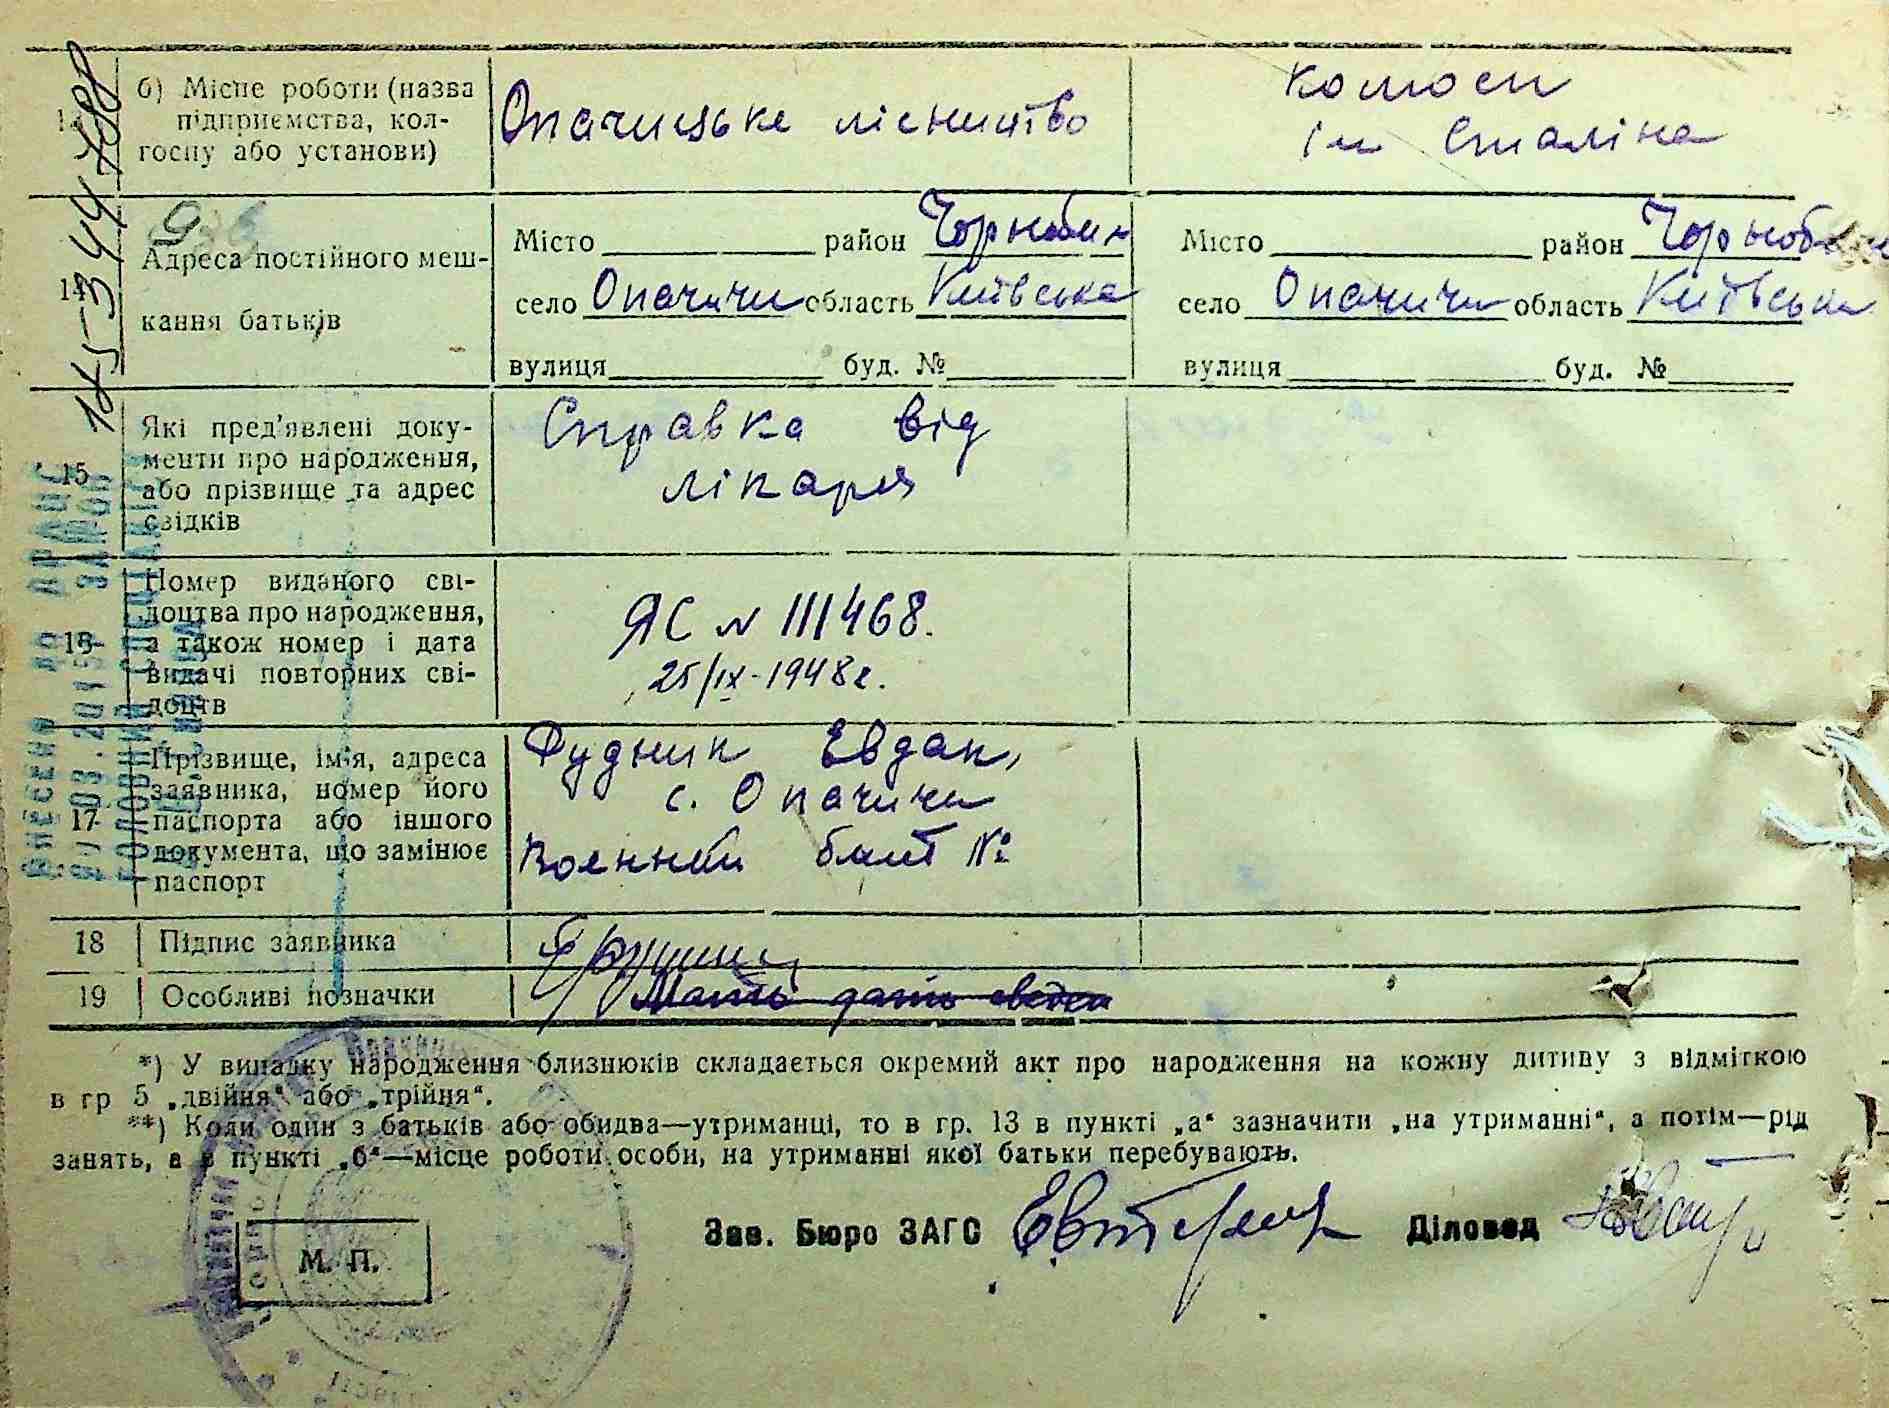 б) Місце роботи (назва
підприємства, кол-
госпу або установи)
Опачицьке лісництво
колгосп
ім Сталіна
14
Адреса постійного меш-
кання батьків
Місто район Чорнобил
село Опачичи область Київська
вулиця буд. №
Місто район Чорнобил
село Опачичи область Київська
вулиця буд. №
15
Які пред'явлені доку-
менти про народження,
або прізвище та адрес
свідків
Справка від
лікаря
16
Номер виданого сві-
доцтва про народження,
а також номер і дата
видачі повторних сві-
доцтв
ЯС № 111468.
25/IX-1948г.
17
Прізвище, ім'я, адреса
заявника, номер його
паспорта або іншого
документа, що замінює
паспорт
Рудник Евдак,
с. Опачичи
Военный билет №
18 Підпис заявника
19 Особливі позначки
Мать дать
*) У випадку народження близнюків складається окремий акт про народження на кожну дитину з відміткою
в гр 5 „двійня" або „трійня".
**) Коли один з батьків або обидва—утриманці, то в гр. 13 в пункті „а" зазначити „на утриманні", а потім—рід
занять, а в пункті „б"—місце роботи особи, на утриманні якої батьки перебувають.
М. П.
Зав. Бюро ЗАГС
Діловод
Внесено до ДРАЦС
ГОЛОВНИЙ СПЕЦІАЛІСТ